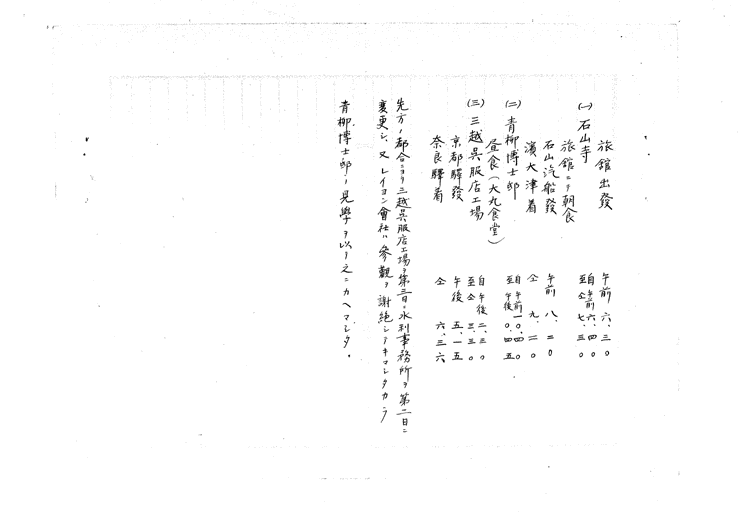 旅館出發 午前 六、三〇
(一) 石山寺 自午前六、四〇 至仝七、三〇
旅館ニテ朝食
石山汽船發 午前 八、二〇
濱大津着 仝 九、二〇
(二) 青柳博士邸 自午前一〇、四〇 至午後〇、四五
昼食(大丸食堂)
(三) 三越呉服店工場 自午後二、三〇 至仝三、三〇
京都驛發 午後 五、一五
奈良驛着 仝 六、三六
先方ノ都合ニヨリ三越呉服店工場ヲ第三日、水利事務所ヲ第二日ニ
変更シ、又レイヨン會社ハ参觀ヲ謝絶シテキマシタカラ
青柳博士邸ノ見學ヲ以テ之ニカヘマシタ。